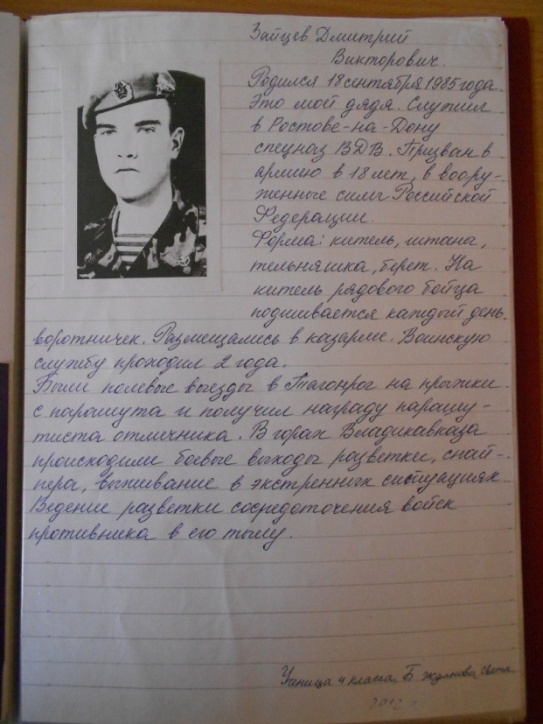 Зайцев Дмитрий
Викторович.
Родился 18 сентября 1985 года.
Это мой дядя. Служил
в Ростове-на-Дону
спецназ ВДВ. Призван в
армию в 18 лет, в воору-
женные силы Российской
Федерации.
Форма: китель, штаны,
тельняшка, берет. На
китель рядового бойца
подшивается каждый день
воротничек. Размещались в казарме. Воинскую
службу проходил 2 года.
Были полевые выезды в Тагонрог на прыжки
с парашюта и получил награду парашу-
тиста отличника. В горах Владикавказа
происходили боевые выходы разветки, снай-
пера, выживание в экстренных ситуациях.
Ведение разветки сосредоточения войск
противника в его тылу.
Ученица 4 класса, Б
2012 г.